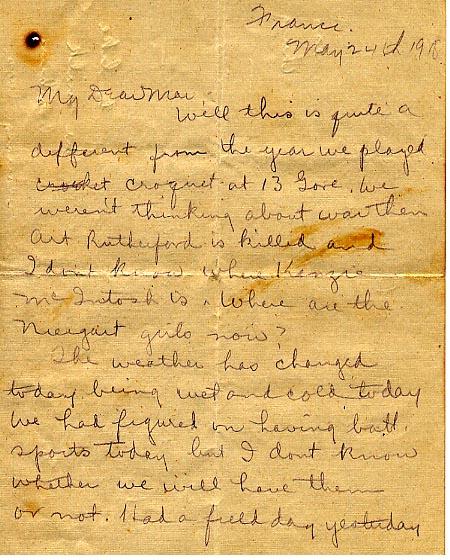 France.
May 24th 1918.
My Dear Mae
Well this is quite a
different from the year we played
crocket croquet at 13 Gore. We
weren't thinking about war then
Art Rutherford is killed and
I dont know where Kenzie
McIntosh is. Where are the
girls now?
The weather has changed
today being wet and cold today
we had figured on having batt.
sports today but I dont know
whether we will have them
or not. Had a field day yesterday